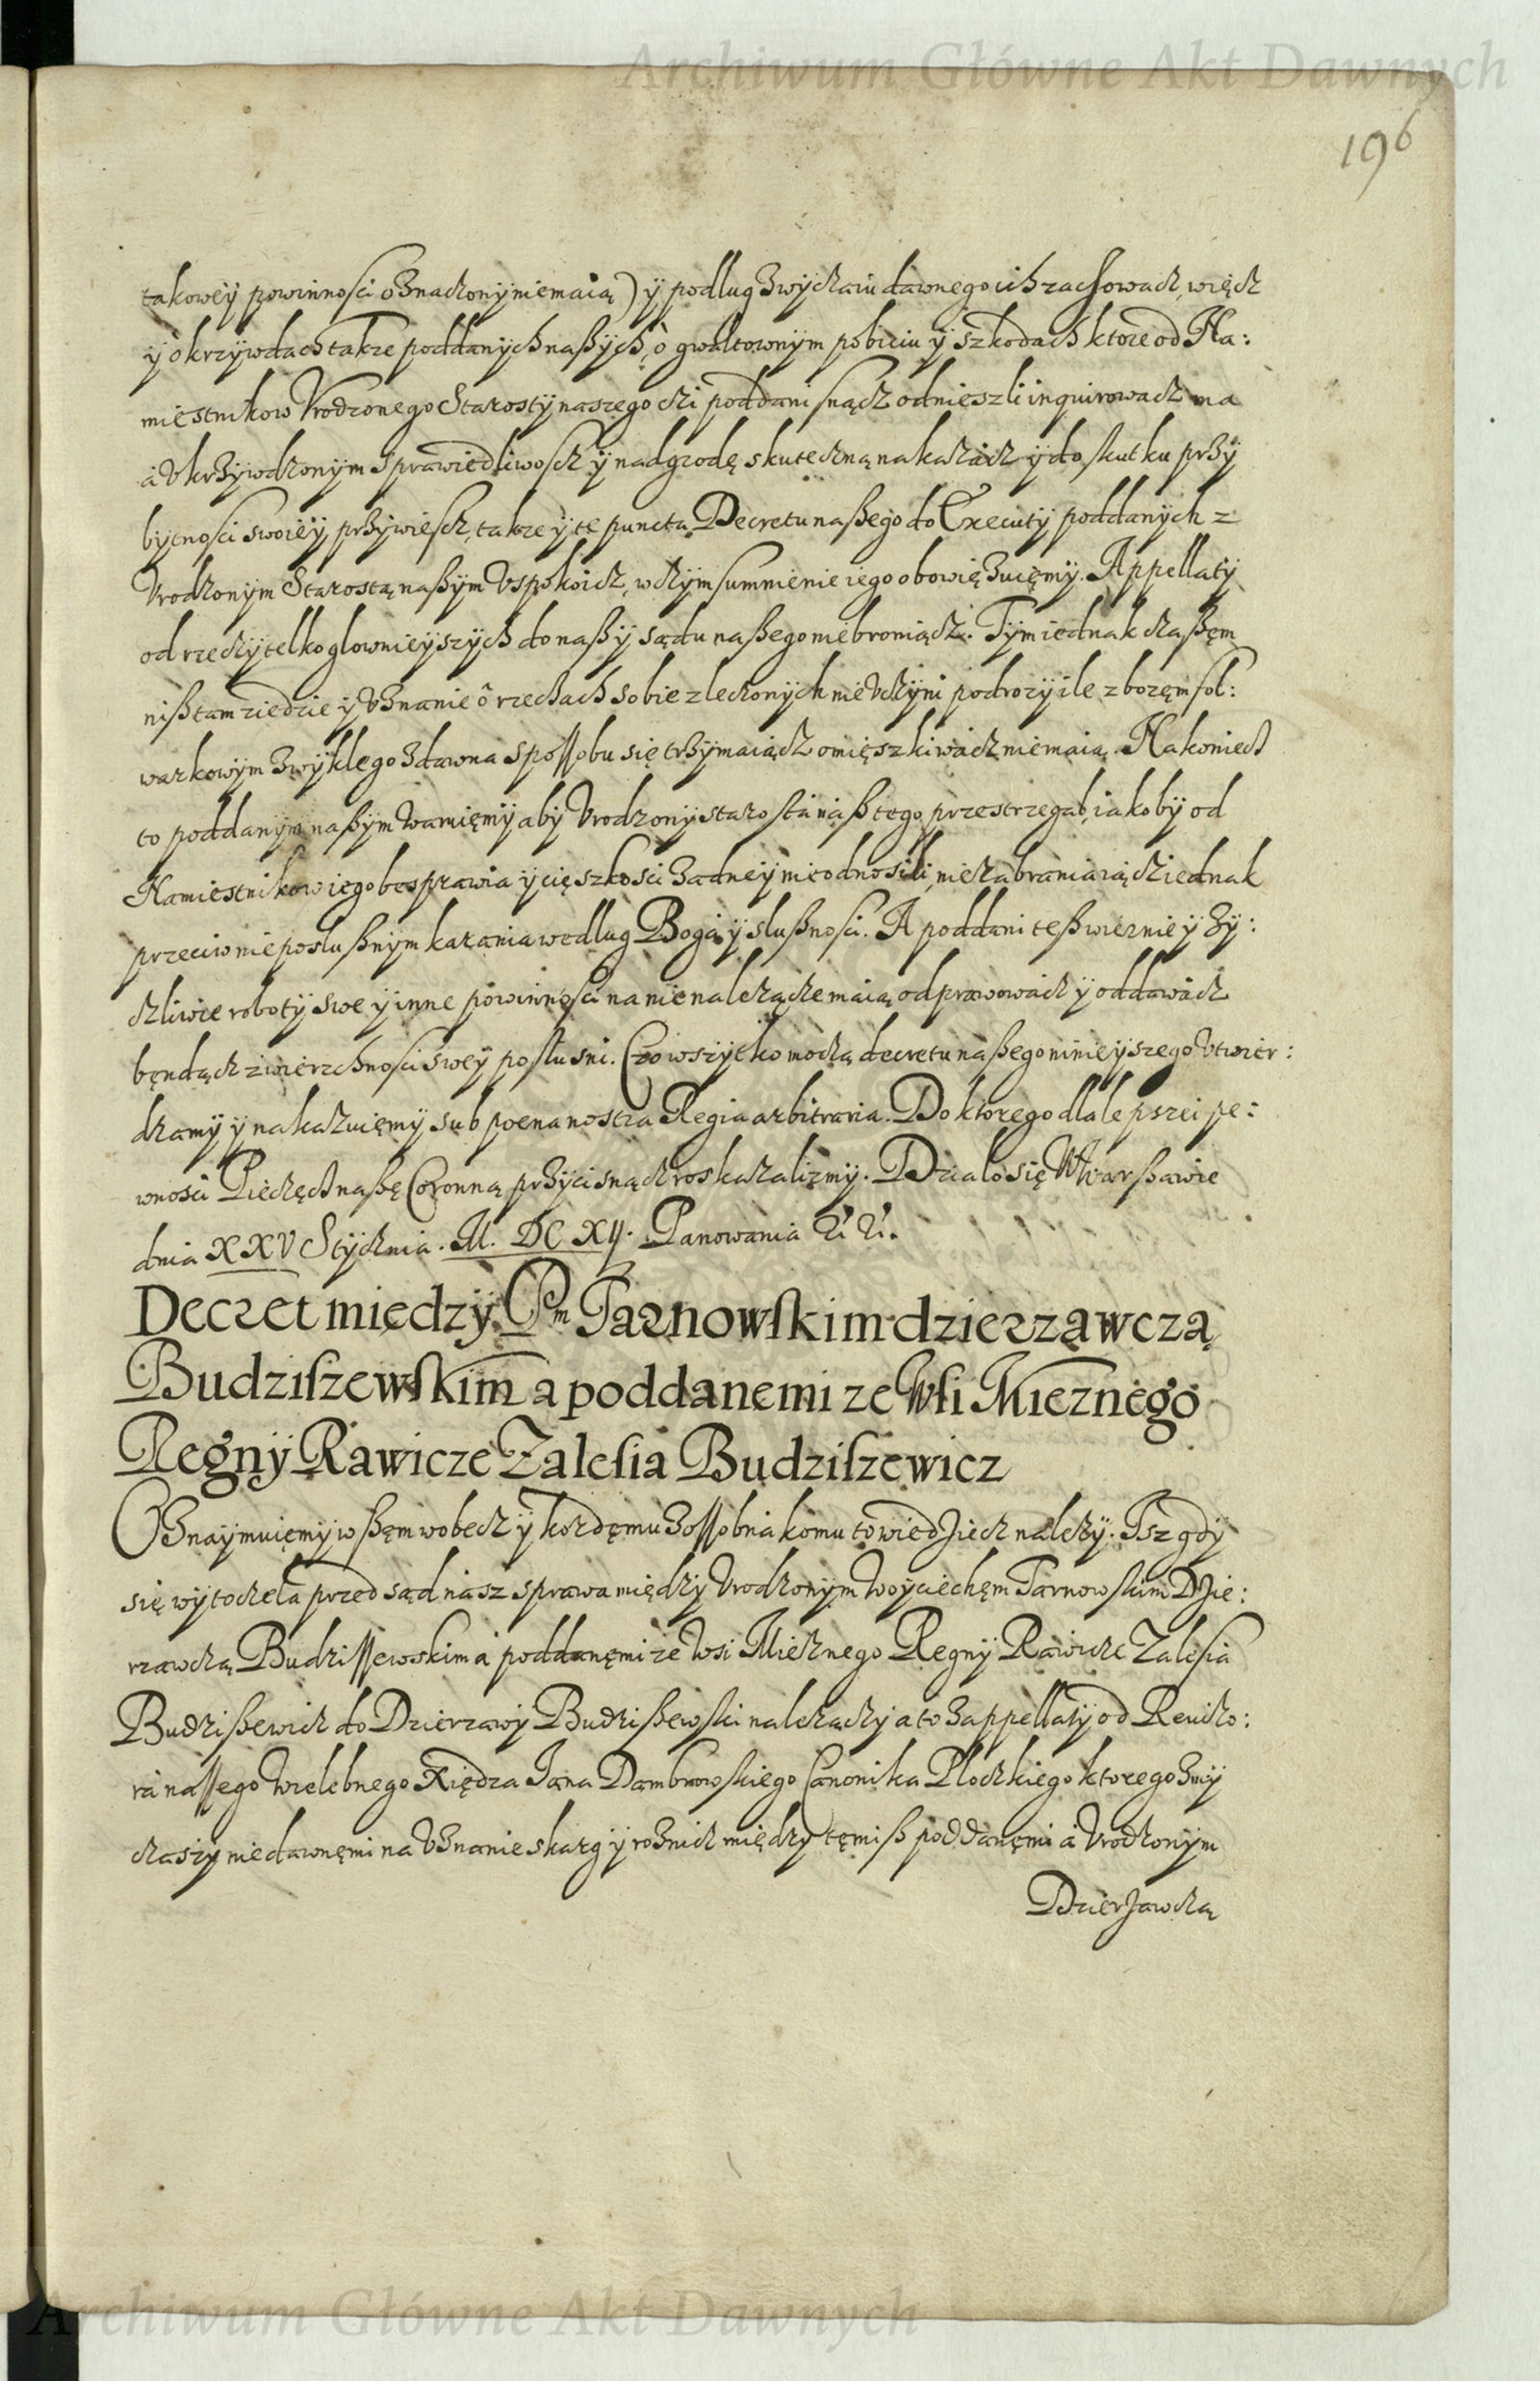 Archiwum Główne Akt Dawnych
196
takowey powinnosci oznaczony niemaią) y podlug zwyczaiu dawnego ich zachowacz, więcz
y o krzywdach takze poddanych naßych, o gwaltownym pobiciu y szkodach ktore od Na:
miestnikow Vrodzonego Starosty naszego czi poddani snącz odnieszli inquirowacz ma
a Vkrzywdzonym sprawiedliwoscz y nadgrodę skuteczną nakazacz y do skutku przy
bytnosci swoiey przywiescz, takze y te puncta Decretu naßego do Executy poddanych z
Vrodzonym Starostą naßym Vspokoicz, w czym sumnienie iego obowięzuięmy. Appellaty
od rzeczy telko glownieyszych do naßy sądu naßego niebroniącz. Tym iednak czaßęm
niß tam ziedzie y Vznanie o rzeczach sobie zleczonych nie Vczyni podrozy ile z bozęm fol:
warkowym zwyklego zdawna spossobu się trzymaiącz omięszkiwacz niemaią. Nakoniecz
to poddanym naßym waruięmy aby Vrodzony starosta naß tego przestrzegał, iakoby od
Namiestnikow iego besprawia y cięszkosci zadney nieodnosili, niezabraniaiącz iednak
przeciw nieposlußnym karania wedlug Boga y slußnosci. A poddani teß wiernie y zy:
czliwie roboty swe y inne powinnosci na nie nalezące maią odprawowacz y oddawacz
będącz zwierzchnosci swey poslusni. Czo wszytko moczą decretu naßego ninieyszego Vtwier:
dzamy y nakazuięmy sub poena nostra Regia arbitraria. Do ktorego dla lepszei pe:
wnosci Pieczęcz naßę Coronną przycisnącz roskazalizmy. Dzialo się w Warßawie
dnia XXV Stycznia. M. DC XII. Panowania &c &c.
Decret między Pm Tarnowskim dzierzawczą
Budziszewskim a poddanemi ze Wsi Mieznego
Regny Rawicze Zalesia Budziszewicz
Oznaymuięmy wßęm wobecz y kozdęmu zossobna komu to wiedziecz nalezy. Isz gdy
się wytoczela przed sąd nasz sprawa między Vrodzonym Woyciechęm Tarnowskim Dzie:
rzawczą Budzissewskim a poddanęmi ze Wsi Miecznego Regny Rawicze Zalesia
Budzißewicz do Dzierzawy Budzißewski nalezączy a to z appellaty od Reuizo:
ra nassego Wielebnego Xiędza Jana Dambrowskiego Canonika Ploczkiego ktorego zmy
czaszy niedawnęmi na Vznanie skarg y roznicz między tęmiß poddanęmi a Vrodzonym
Dzierzawczą
Archiwum Główne Akt Dawnych